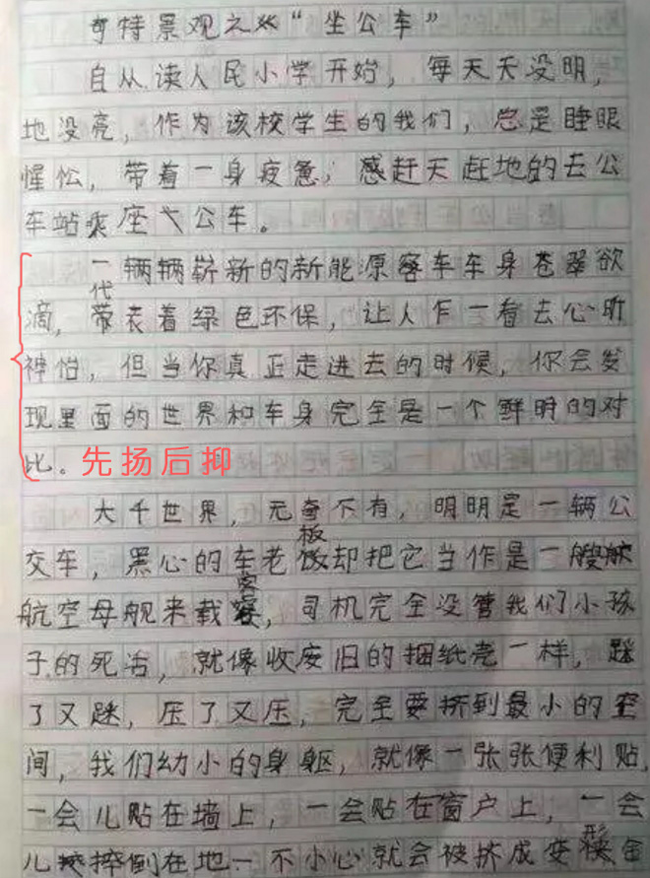 奇特景观之从“坐公车”
自从读人民小学开始，每天天没明，
地没亮，作为该校学生的我们，总是睡眼
惺忪，带着一身疲惫，感赶天赶地的去公
车站乘座公车。
一辆辆崭新的新能源客车车身苍翠欲
滴，代表着绿色环保，让人乍一看去心旷
神怡，但当你真正走进去的时候，你会发
现里面的世界和车身完全是一个鲜明的对
比。先扬后抑
大千世界，无奇不有，明明是一辆公
交车，黑心的车老板却把它当作是一艘
航空母舰来载客，司机完全没管我们小孩
子的死活，就像收废旧的捆纸壳一样，踩
了又踩，压了又压，完全要挤到最小的空
间，我们幼小的身躯，就像一张张便利贴，
一会儿贴在墙上，一会贴在窗户上，一会
儿摔倒在地一不小心就会被挤成变形金